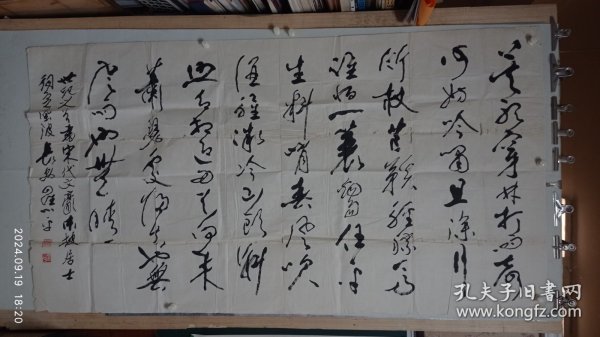 莫听穿林打叶声
何妨吟啸且徐行
竹杖芒鞋轻胜马
谁怕一蓑烟雨任平
生料峭春风吹
酒醒微冷山头斜
照却相迎回首向来
萧瑟处归去也無
风雨也無晴
世纪之交书宋代文豪东坡居士
词定风波长安
2024.09.19 18:20
孔夫子旧书网